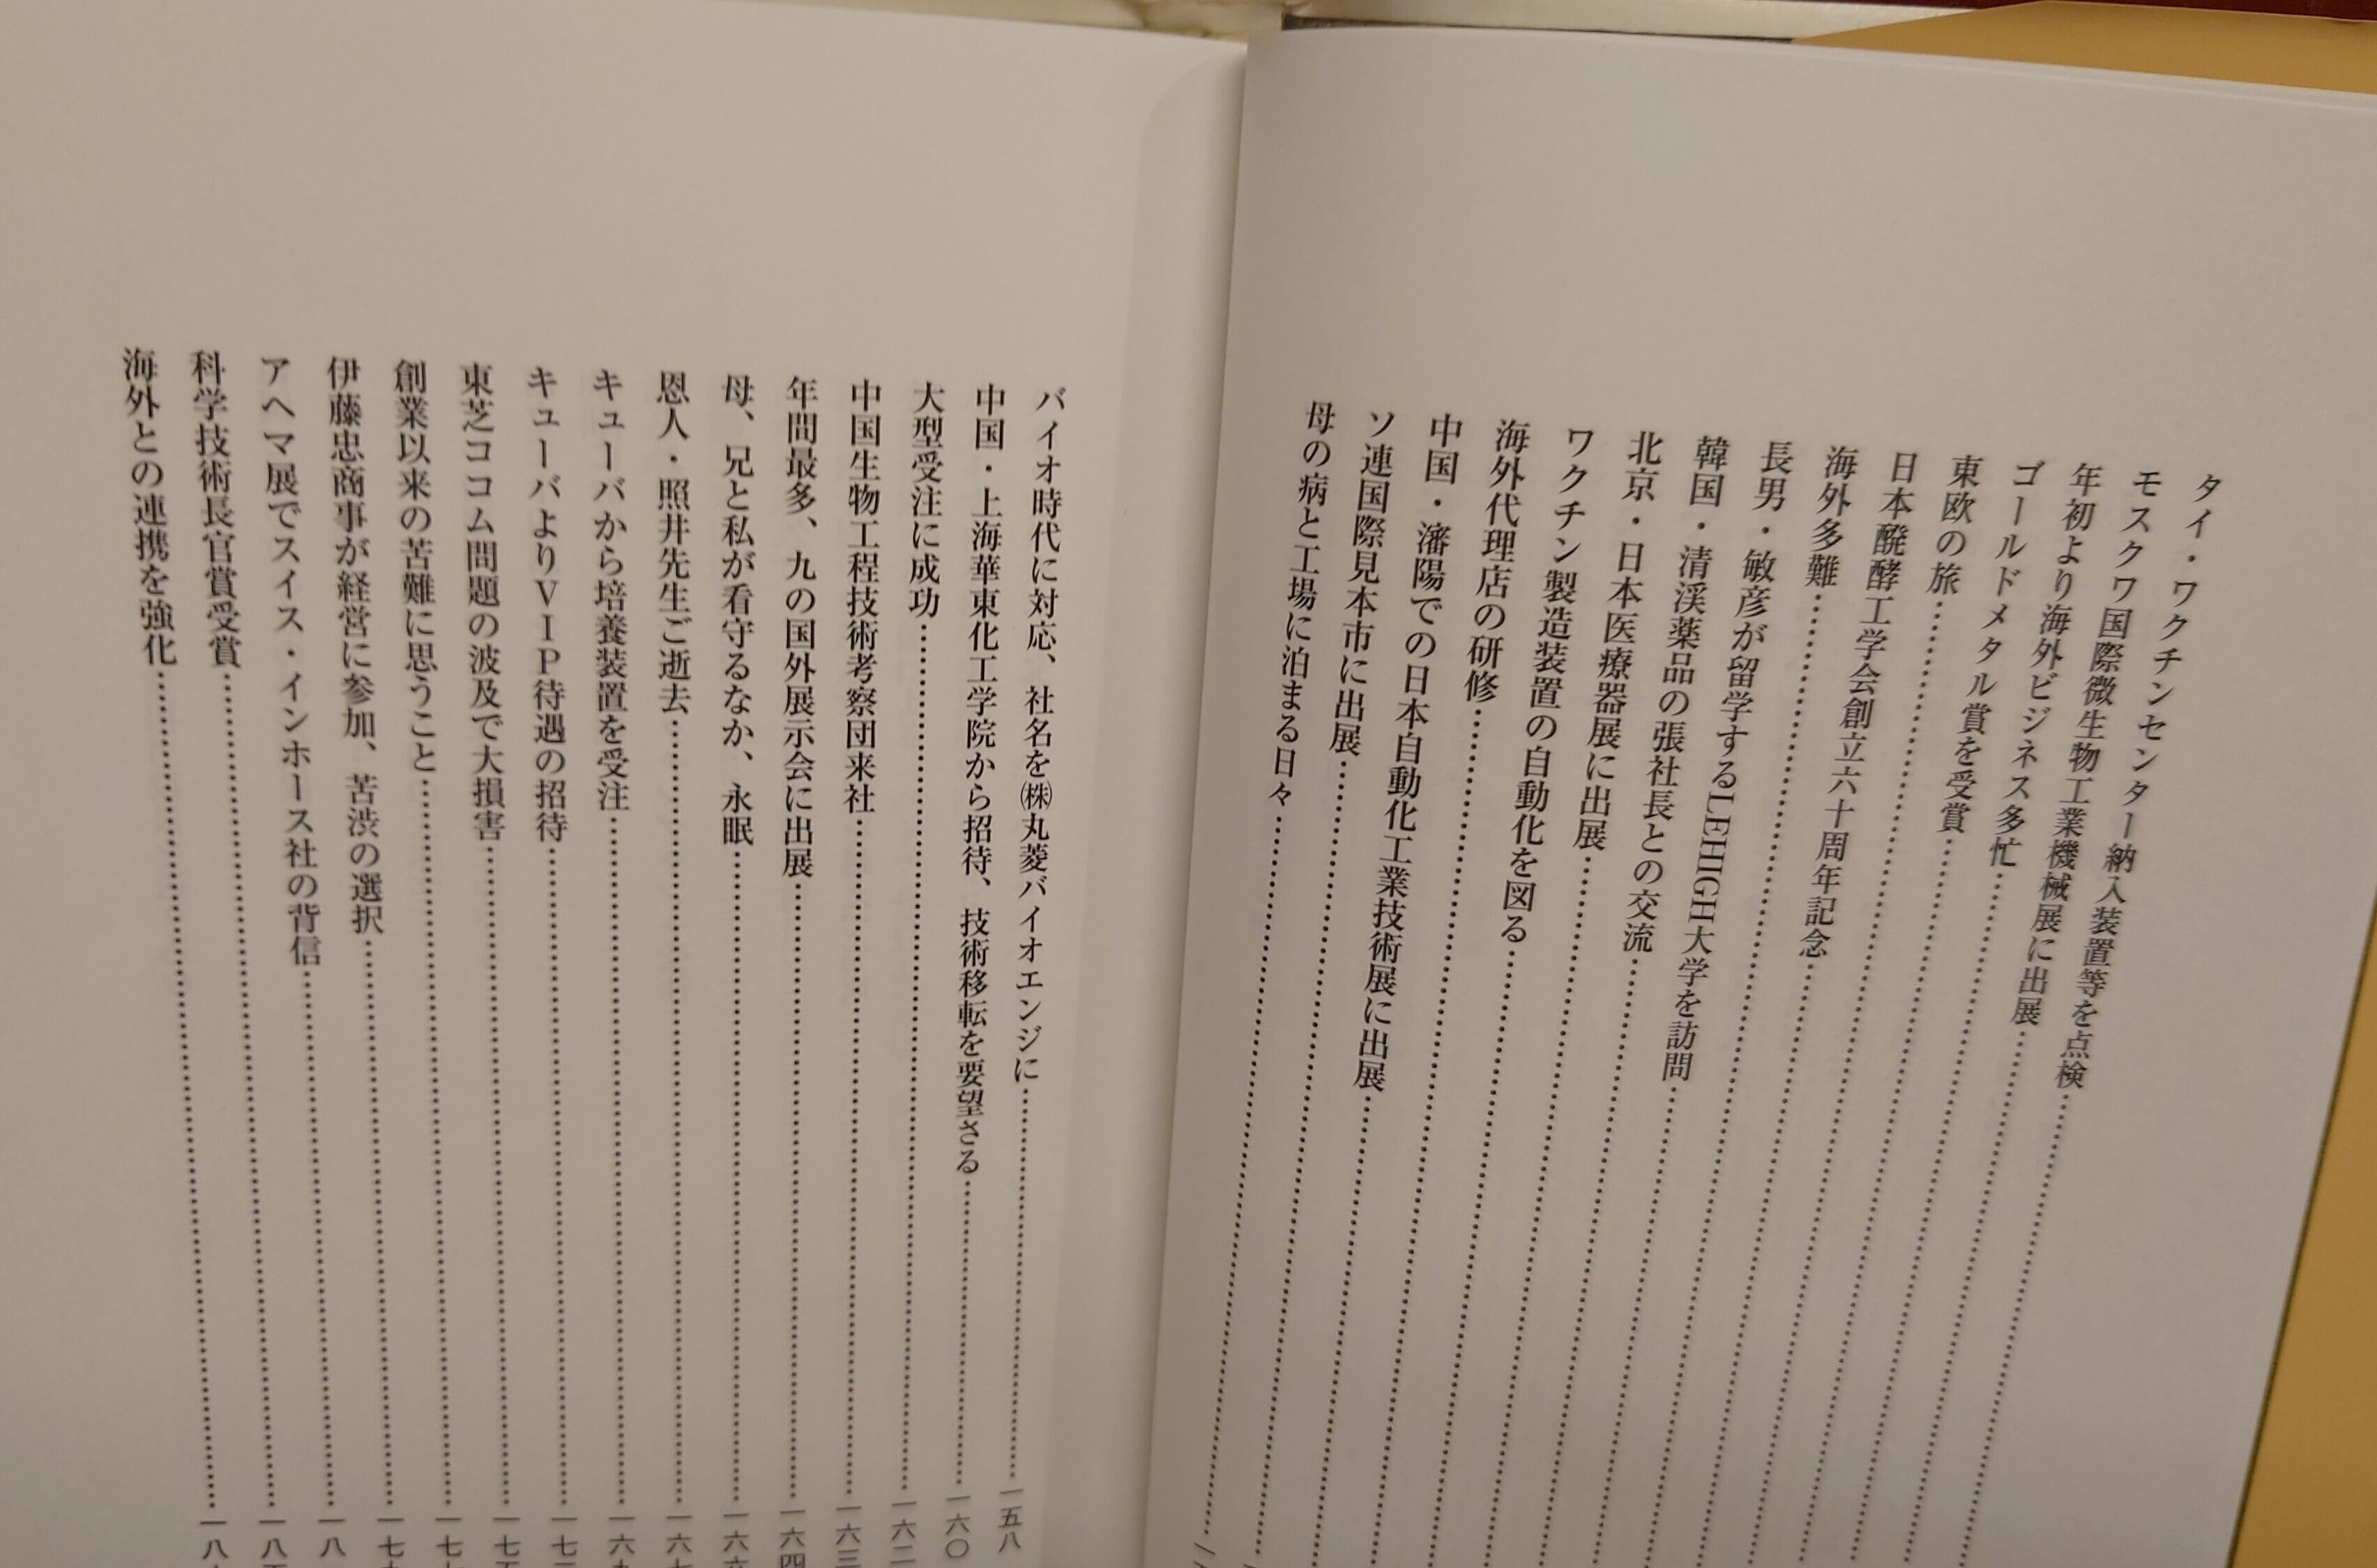 タイ・ワクチンセンター納入装置等を点検
モスクワ国際微生物工業機械展に出展
年初より海外ビジネス多忙
ゴールドメタル賞を受賞
東欧の旅
日本醗酵工学会創立六十周年記念
海外多難
長男・敏彦が留学するLEHIGH大学を訪問
韓国・清渓薬品の張社長との交流
北京・日本医療器展に出展
ワクチン製造装置の自動化を図る
海外代理店の研修
中国・瀋陽での日本自動化工業技術展に出展
ソ連国際見本市に出展
母の病と工場に泊まる日々
バイオ時代に対応、社名を㈱丸菱バイオエンジに……一五八
中国・上海華東化工学院から招待、技術移転を要望さる……一六〇
大型受注に成功……一六二
中国生物工程技術考察団来社……一六三
年間最多、九の国外展示会に出展……一六四
母、兄と私が看守るなか、永眠……一六六
恩人・照井先生ご逝去……一六七
キューバから培養装置を受注……一六九
キューバよりＶＩＰ待遇の招待……一七
東芝ココム問題の波及で大損害……一七五
創業以来の苦難に思うこと……一七
伊藤忠商事が経営に参加、苦渋の選択……一七
アヘマ展でスイス・インホース社の背信……一八
科学技術長官賞受賞……一八
海外との連携を強化……一八